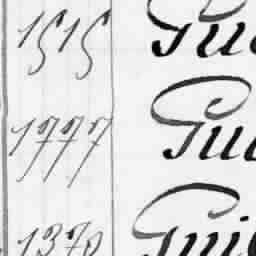 1515 Gu
1777 Gu
1370 Gui